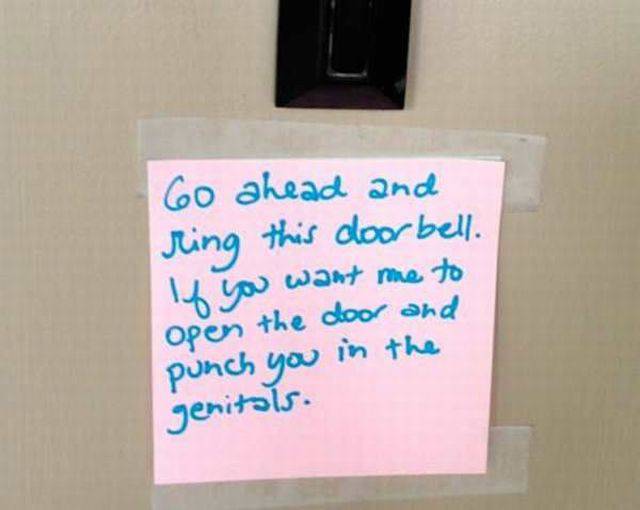 Go ahead and
ring this doorbell.
If you want me to
open the door and
punch you in the
genitals.